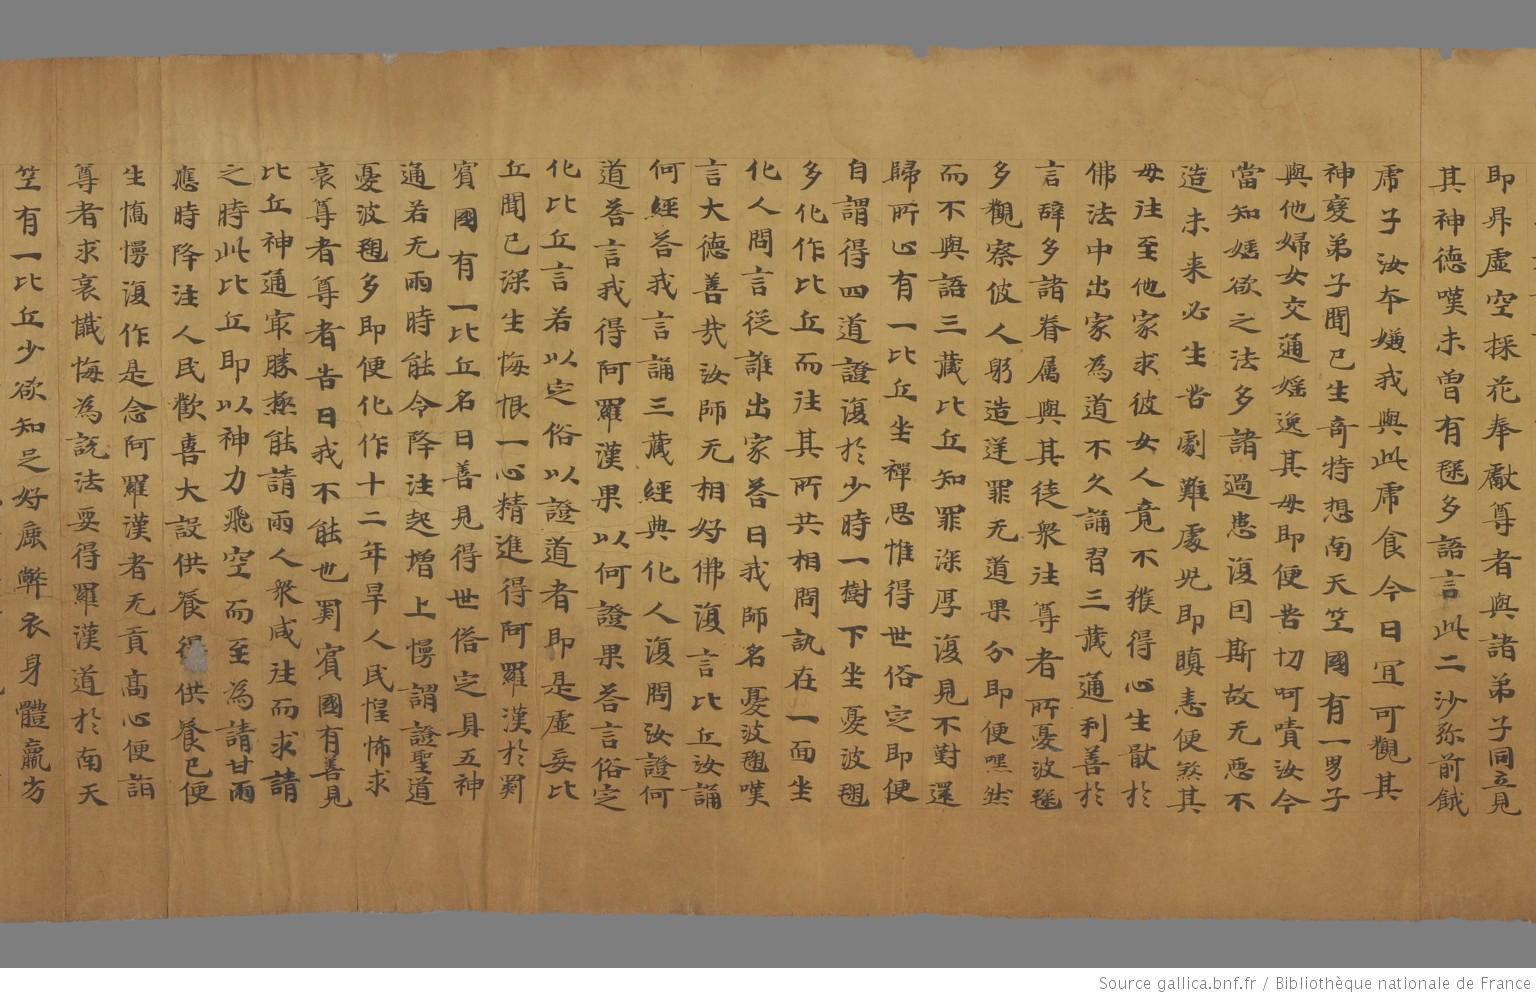 即昇虚空採花奉獻尊者與諸弟子同立見
其神德嘆未曾有毱多語言此二沙弥前餓
虎子汝夲嫌我與此虎食今日冝可觀其
神變弟子聞已生竒特想南天笠國有一男子
與他婦女交通婬逸其母即便苦切呵嘖汝今
當知婬欲之法多諸過患復曰斯故无惡不
造未来必生苦劇難處兒即瞋恚便煞其
母往至他家求彼女人竟不獲得心生猒於
佛法中出家為道不久誦習三藏通利善於
言辞多諸眷属與其徒衆往尊者所憂波毱
多觀察彼人躬造逆罪无道果分即便嘿然
而不與語三藏比丘知罪深厚復見不對還
歸所心有一比丘坐禪思惟得世俗定即便
自謂得四道證復於少時一樹下坐憂波毱
多化作比丘而往其所共相問訊在一面坐
化人問言從誰出家荅曰我師名憂波毱嘆
言大德善哉汝師无相好佛復言比丘汝誦
何經荅我言誦三藏經典化人復問汝證何
道荅言我得阿羅漢果以何證果荅言俗定
化比丘言若以定俗以證道者即是虚妄比
丘聞已深生悔恨一心精進得阿羅漢於罽
賓國有一比丘名曰善見得世俗定具五神
通若无雨時能令降注起增上慢謂證聖道
憂波毱多即便化作十二年旱人民惶怖求
哀尊者尊者告曰我不能也罽賓國有善見
比丘神通㝡勝極能請雨人衆咸往而求請
之時此比丘即以神力飛空而至為請甘雨
應時降注人民歡喜大設供養得供養已便
生憍慢復作是念阿羅漢者无貢高心便詣
尊者求哀懺悔為説法要得羅漢道於南天
笠有一比丘少欲知足好麁弊衣身體羸劣
Source gallica.bnf.fr / Bibliothèque nationale de France